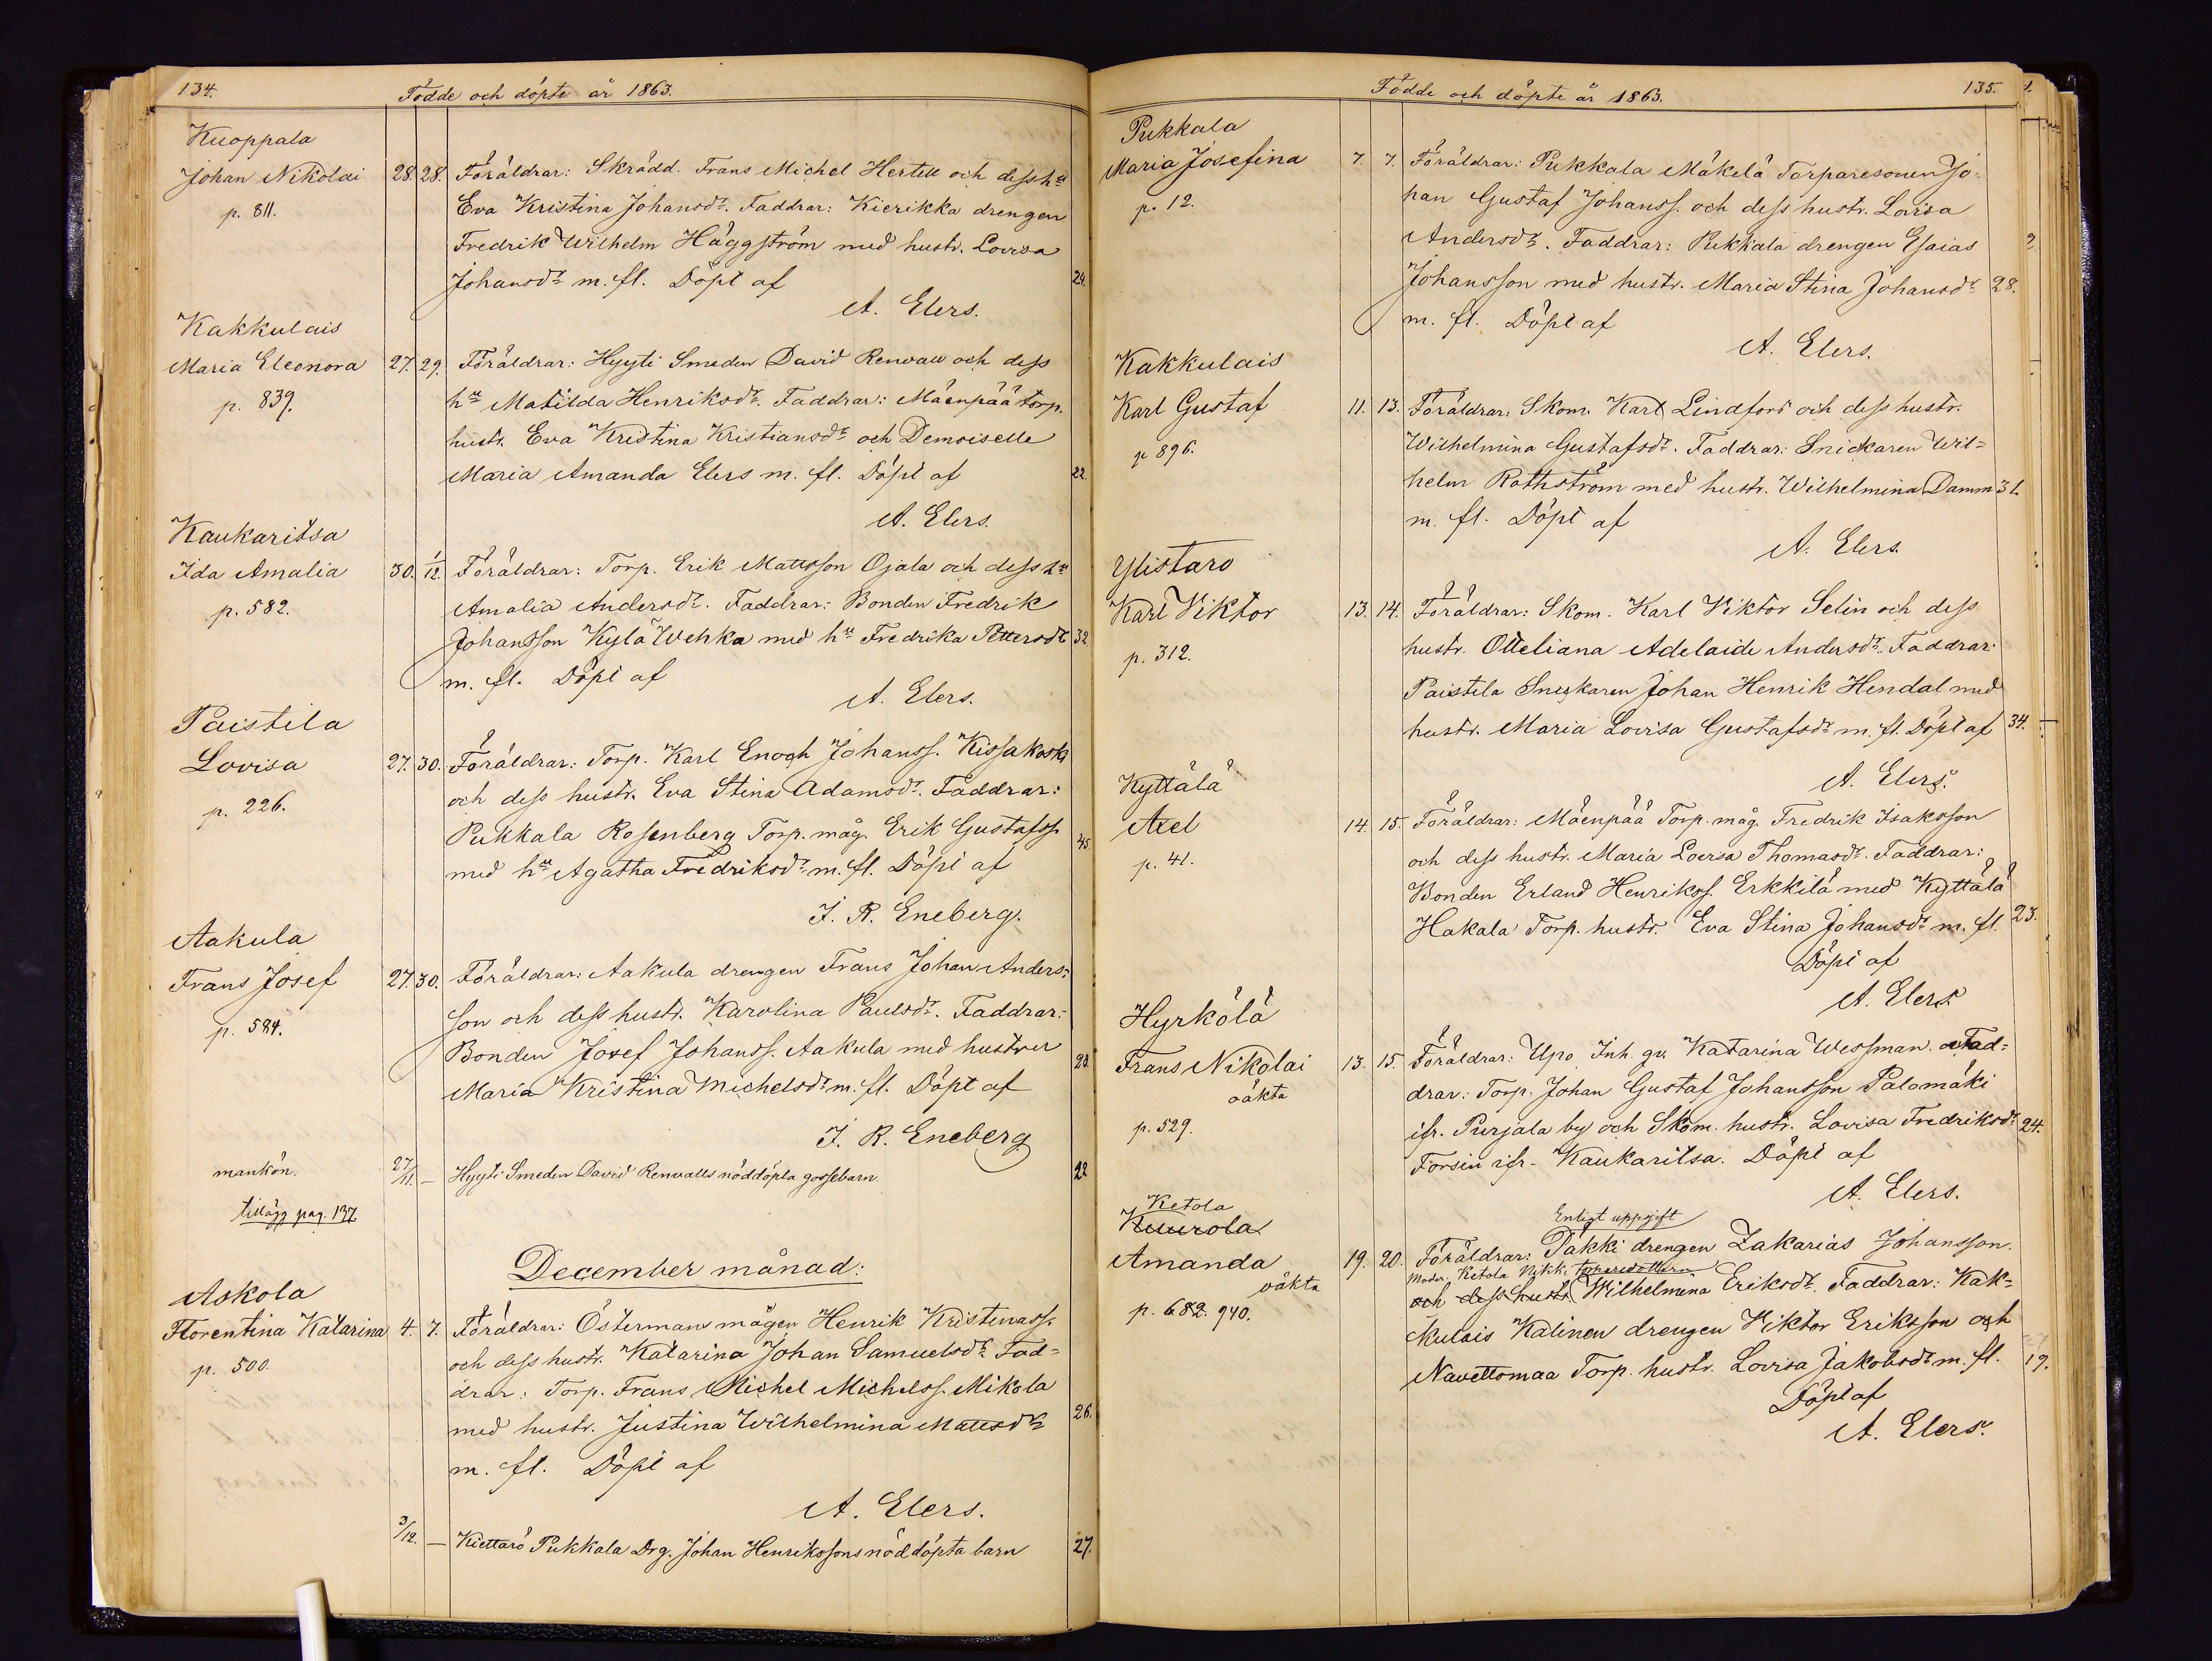 134.
Födde och döpte år 1863.
Kuoppala
Johan Nikolai 28. 28. Föräldrar: Skrädd. Frans Michel Hertell och dess hu
p. 811. Eva Kristina Johansdr. Faddrar: Kierikka drengen
Fredrik Wilhelm Häggström med hustr. Lovisa
Johansdr m. fl. Döpt af 24.
A. Elers.
Kakkulais
Maria Eleonora 27. 29. Föräldrar: Hyyti Smeden David Renvall och dess
p. 839. hu Matilda Henriksdr. Faddrar: Mäenpää torp.
hustr. Eva Kristina Kristiansdr och Demoiselle
Maria Amanda Elers m. fl. Döpt af 22.
A. Elers.
Kaukaritsa
Ida Amalia 30. 1/12. Föräldrar: Torp. Erik Mattsson Ojala och dess hu
p. 582. Amalia Andersdr. Faddrar: Bonden Fredrik
Johansson Kylä Wehka med hu Fredrika Pettersdr 32.
m. fl. Döpt af
A. Elers.
Paistila
Lovisa 27. 30. Föräldrar: Torp. Karl Enoch Johanss. Kissakoski
p. 226. och dess hustr. Eva Stina Adamsdr. Faddrar:
Pukkala Rosenberg Torp. måg. Erik Gustafss. 45.
med hu Agatha Fredriksdr m. fl. Döpt af
J. R. Eneberg.
Aakula
Frans Josef 27. 30. Föräldrar: Aakula drengen Frans Johan Anders=
p. 584. son och dess hustr. Karolina Paulsdr. Faddrar:
Bonden Josef Johanss. Aakula med hustrer 28.
Maria Kristina Michelsdr m. fl. Döpt af
J. R. Eneberg
mankön. 27/11. — Hyyti Smeden David Renvalls nöddöpta gossebarn. 22
tillägg pag. 137.
December månad:
Askola
Florentina Katarina 4. 7. Föräldrar: Östermans mågen Henrik Kristinass.
p. 500. och dess hustr. Katarina Johan Samuelsdr. Fad=
drar: Torp. Frans Michel Michelss. Mikola
med hustr. Justina Wilhelmina Mattsdr 26.
m. fl. Döpt af
A. Elers.
3/12. — Kiettarö Pukkala Drg. Johan Henrikssons nöddöpta barn 27.
Födde och döpte år 1863.
135.
Pukkala
Maria Josefina 7. 7. Föräldrar: Pukkala Mäkelä Torparesonen Jo=
p. 12. han Gustaf Johanss. och dess hustr. Lovisa
Andersdr. Faddrar: Pukkala drengen Esaias
Johansson med hustr. Maria Stina Johansdr 28.
m. fl. Döpt af
A. Elers.
Kakkulais
Karl Gustaf 11. 13. Föräldrar: Skom. Karl Lindfors och dess hustr.
p 896. Wilhelmina Gustafsdr. Faddrar: Snickaren Wil=
helm Rothström med hustr. Wilhelmina Damm 31.
m. fl. Döpt af
A. Elers.
Ylistaro
Karl Viktor 13. 14. Föräldrar: Skom. Karl Viktor Selin och dess
p. 312. hustr. Otteliana Adelaide Andersdr. Faddrar:
Paistila Snickaren Johan Henrik Hendal med
hustr. Maria Lovisa Gustafsdr m. fl. Döpt af 34.
A. Elers.
Kyttälä
Axel 14. 15. Föräldrar: Mäenpää Torp. måg. Fredrik Isaksson
p. 41. och dess hustr. Maria Lovisa Thomasdr. Faddrar:
Bonden Erland Henrikss. Erkkilä med Kyttälä
Hakala Torp. hustr. Eva Stina Johansdr m. fl. 23.
Döpt af
A. Elers
Hyrkölä
Frans Nikolai 13. 15. Föräldrar: Upo Inh. qv. Katarina Wessman. Fad=
oäkta
drar: Torp. Johan Gustaf Johansson Palomäki
p. 529. ifr. Purjala by och Skom. hustr. Lovisa Fredriksdr 24.
Forsin ifr. Kaukaritsa. Döpt af
A. Elers.
Ketola
Kuurola
Enligt uppgift
Amanda 19. 20. Föräldrar: Päkki drengen Zakarias Johansson.
oäkta
Moder, Ketola Nikki torparedottern
p. 682. 940. och dess hustr. Wilhelmina Eriksdr. Faddrar: Kak=
kulais Kalinen drengen Viktor Eriksson och
Navettomaa Torp. hustr. Lovisa Jakobsdr m. fl. 19.
Döpt af
A. Elers.